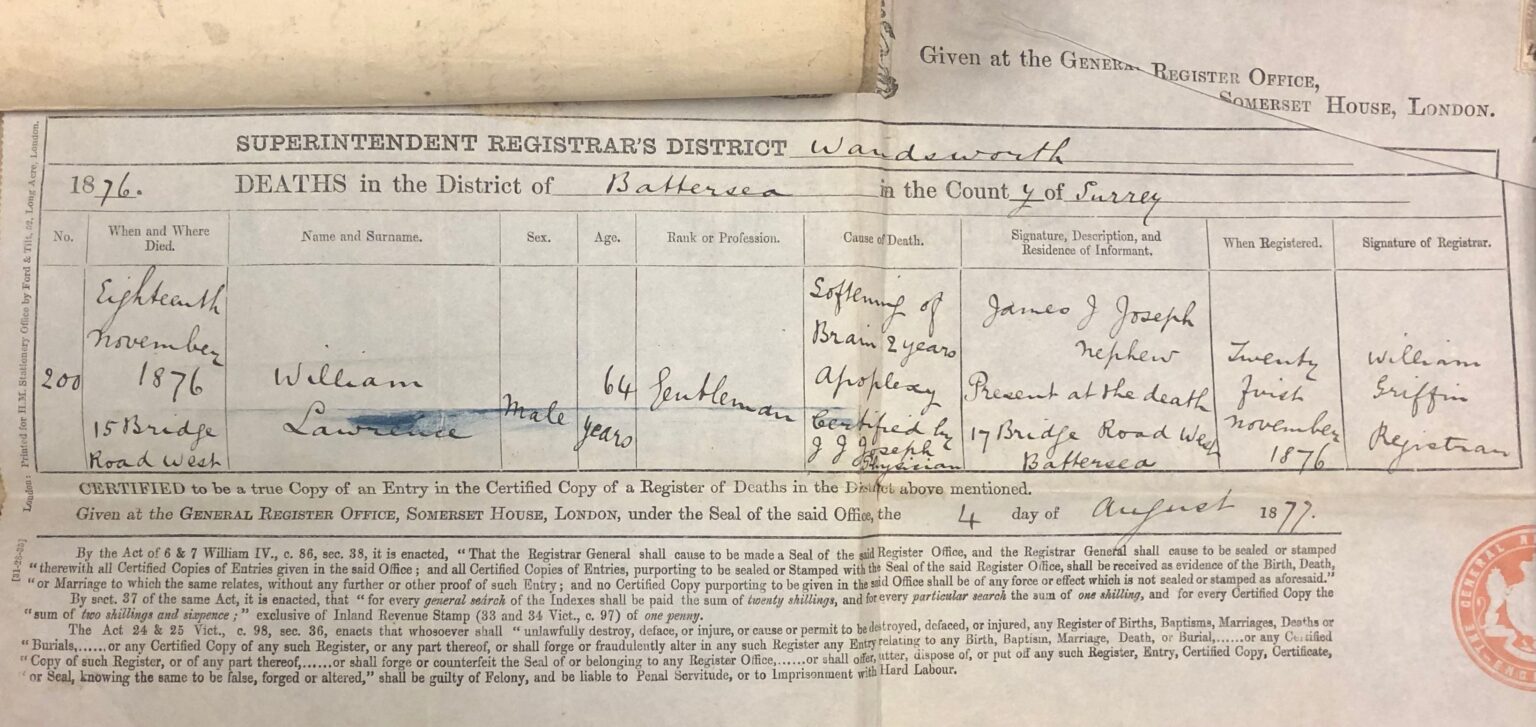 Given at the GENERAL REGISTER OFFICE,
SOMERSET HOUSE, LONDON.
SUPERINTENDENT REGISTRAR'S DISTRICT Wandsworth
1876. DEATHS in the District of Battersea in the County of Surrey
No.
When and Where
Died.
Name and Surname.
Sex.
Age.
Rank or Profession.
Cause of Death.
Signature, Description, and
Residence of Informant.
When Registered.
Signature of Registrar.
200
Eighteenth
November
1876
15 Bridge
Road West
William
Lawrence
Male
64
years
Gentleman
Softening of
Brain 2 years
Apoplexy
Certified by
J J Joseph
Physician
James J Joseph
nephew
Present at the death
17 Bridge Road West
Battersea
Twenty
first
November
1876
William
Griffin
Registrar
CERTIFIED to be a true Copy of an Entry in the Certified Copy of a Register of Deaths in the District above mentioned.
Given at the GENERAL REGISTER OFFICE, SOMERSET HOUSE, LONDON, under the Seal of the said Office, the 4 day of August 1877.
By the Act of 6 & 7 William IV., c. 86, sec. 38, it is enacted, "That the Registrar General shall cause to be made a Seal of the said Register Office, and the Registrar General shall cause to be sealed or stamped
"therewith all Certified Copies of Entries given in the said Office; and all Certified Copies of Entries, purporting to be sealed or Stamped with the Seal of the said Register Office, shall be received as evidence of the Birth, Death,
"or Marriage to which the same relates, without any further or other proof of such Entry; and no Certified Copy purporting to be given in the said Office shall be of any force or effect which is not sealed or stamped as aforesaid."
By sect. 37 of the same Act, it is enacted, that "for every general search of the Indexes shall be paid the sum of twenty shillings, and for every particular search the sum of one shilling, and for every Certified Copy the
"sum of two shillings and sixpence;" exclusive of Inland Revenue Stamp (33 and 34 Vict., c. 97) of one penny.
The Act 24 & 25 Vict., c. 98, sec. 36, enacts that whosoever shall "unlawfully destroy, deface, or injure, or cause or permit to be destroyed, defaced, or injured, any Register of Births, Baptisms, Marriages, Deaths or
"Burials,......or any Certified Copy of any such Register, or any part thereof, or shall forge or fraudulently alter in any such Register any Entry relating to any Birth, Baptism, Marriage, Death, or Burial,......or any Certified
"Copy of such Register, or of any part thereof,......or shall forge or counterfeit the Seal of or belonging to any Register Office,......or shall offer, utter, dispose of, or put off any such Register, Entry, Certified Copy, Certificate,
or Seal, knowing the same to be false, forged or altered," shall be guilty of Felony, and be liable to Penal Servitude, or to Imprisonment with Hard Labour.
London: Printed for H.M. Stationery Office by Ford & Tilt, 52, Long Acre, London.
THE GENERAL RE